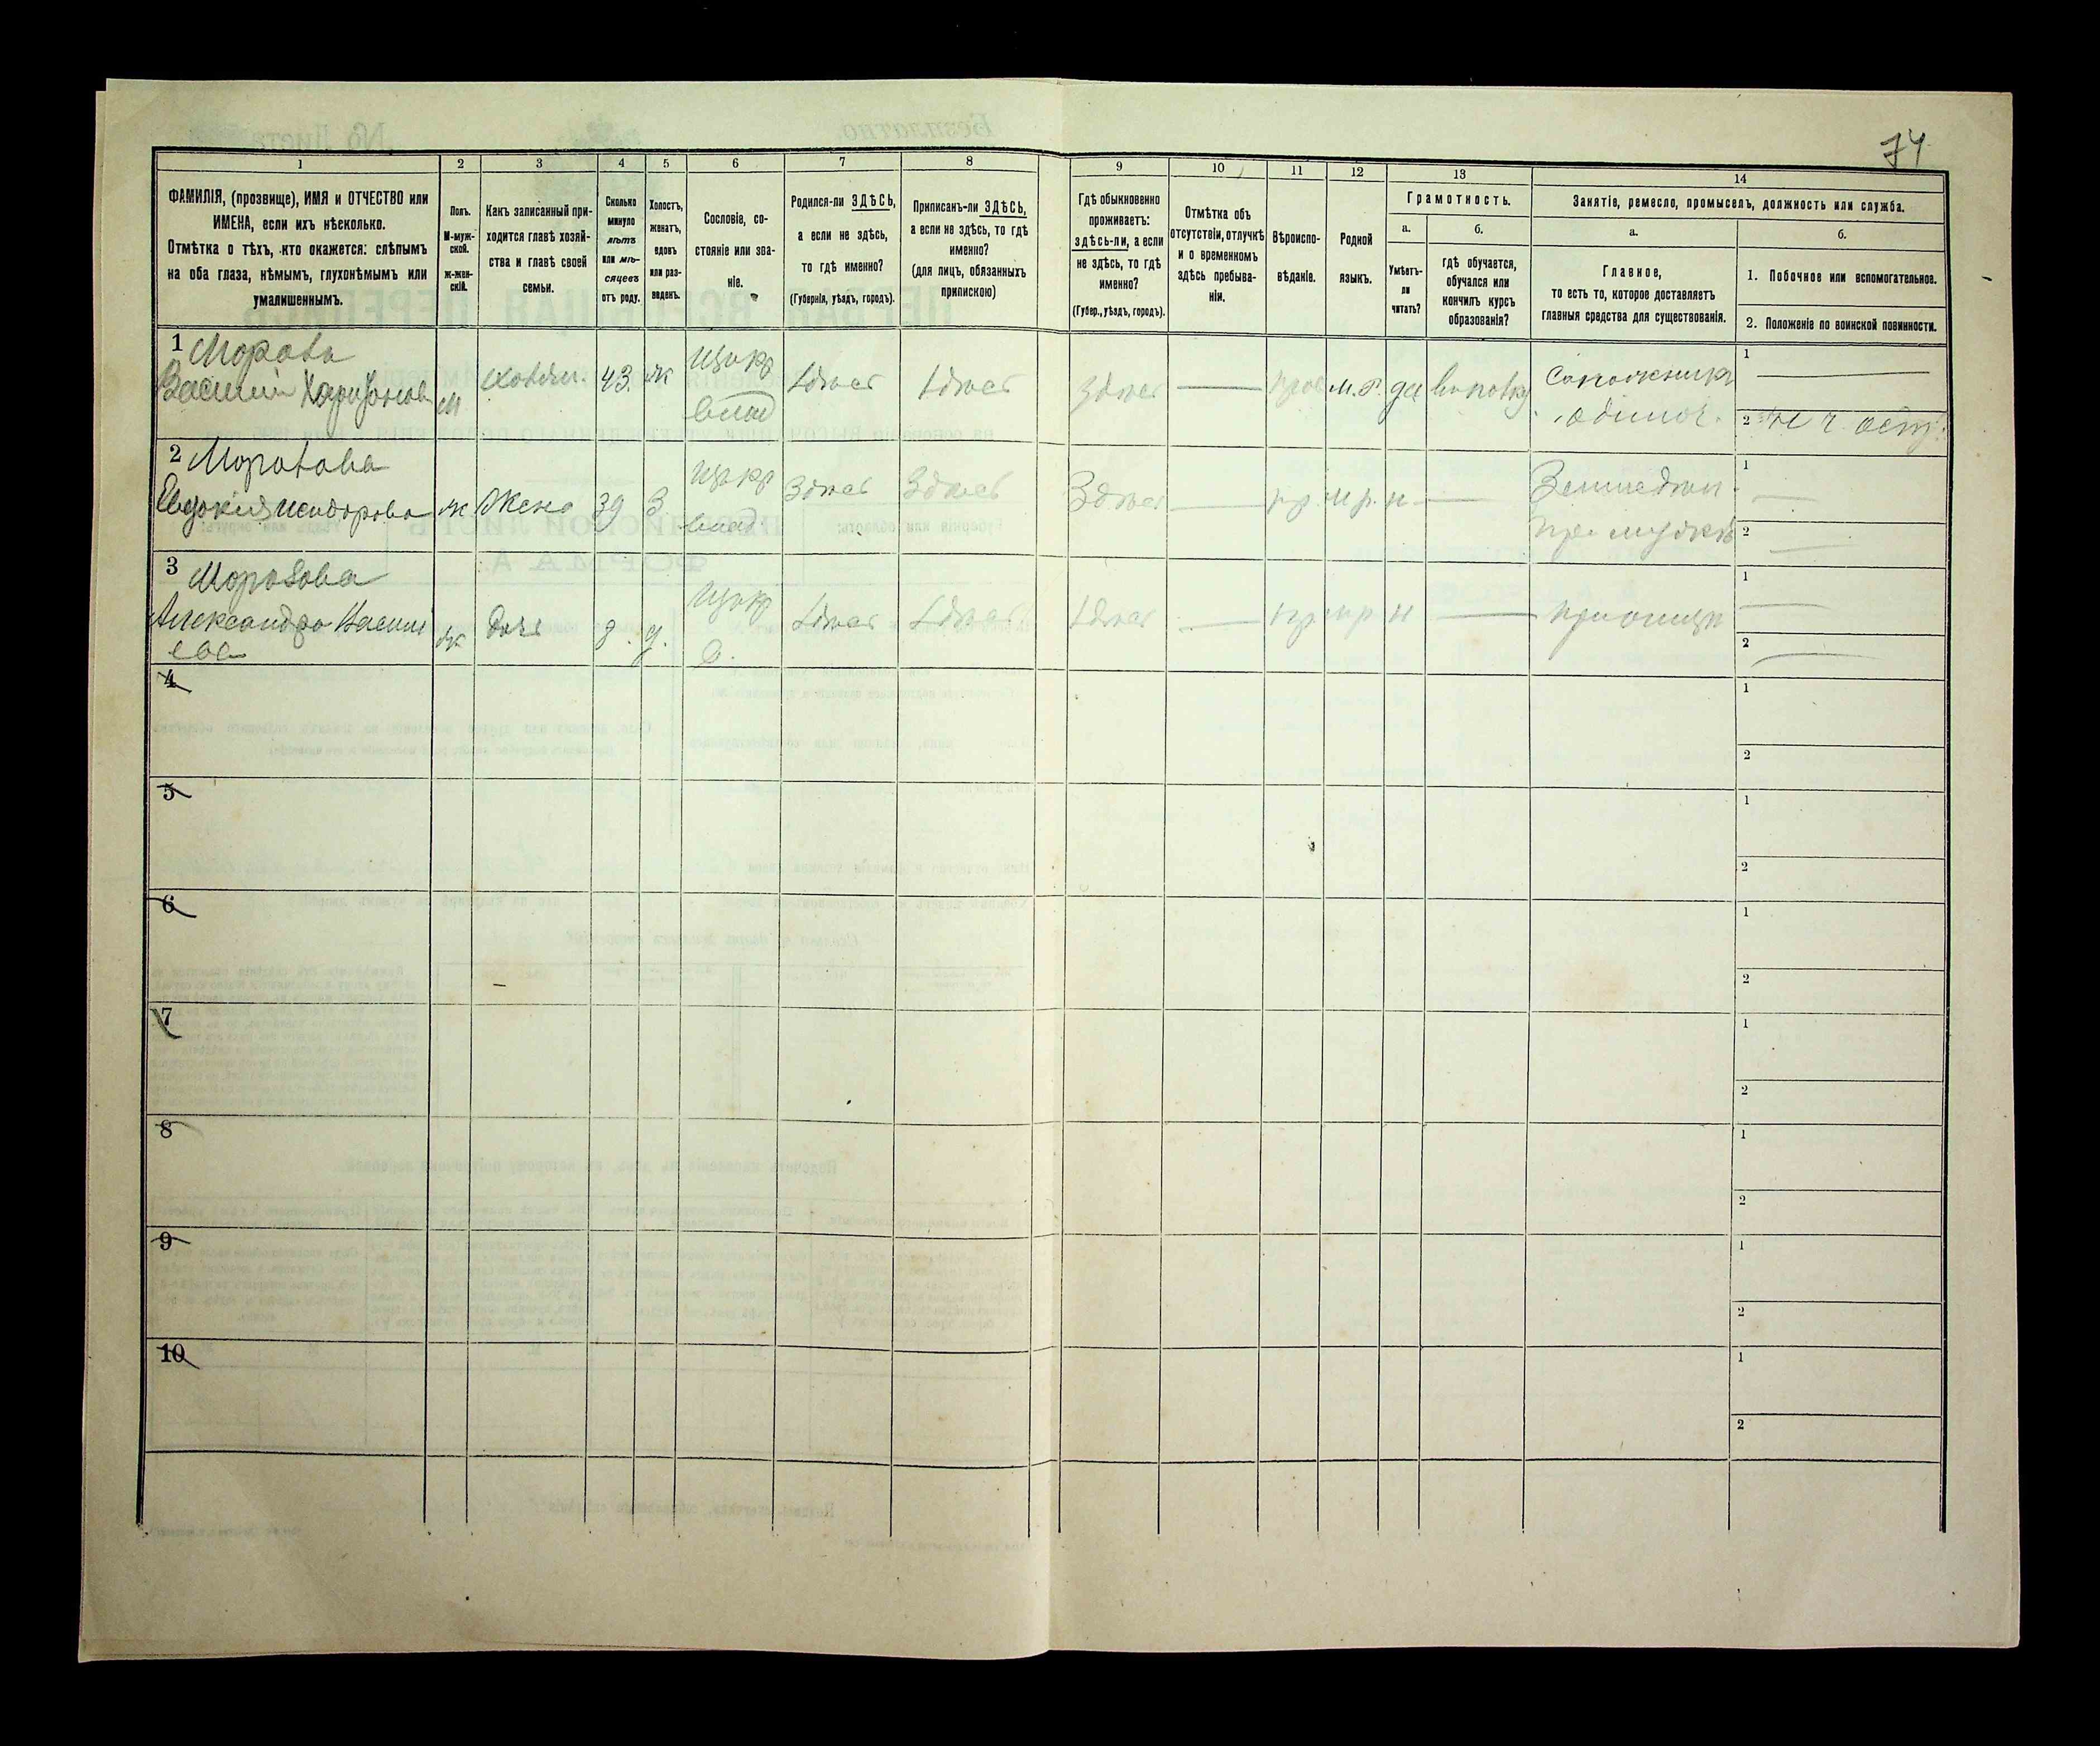 74
1
2
3
4
5
6
7
8
9
10
11
12
13
14
ФАМИЛІЯ, (прозвище), ИМЯ и ОТЧЕСТВО или
ИМЕНА, если ихъ нѣсколько.
Отмѣтка о тѣхъ, кто окажется: слѣпымъ
на оба глаза, нѣмымъ, глухонѣмымъ или
умалишеннымъ.
Полъ.
М-муж-
ской.
ж-жен-
скій.
Какъ записанный при-
ходится главѣ хозяй-
ства и главѣ своей
семьи.
Сколько
минуло
лѣтъ
или мѣ-
сяцевъ
отъ роду.
Холостъ,
женатъ,
вдовъ
или раз-
веденъ.
Сословіе, со-
стояніе или зва-
ніе.
Родился-ли ЗДѢСЬ,
а если не здѣсь,
то гдѣ именно?
(Губернія, уѣздъ, городъ).
Приписанъ-ли ЗДѢСЬ,
а если не здѣсь, то гдѣ
именно?
(для лицъ, обязанныхъ
припискою)
Гдѣ обыкновенно
проживаетъ:
здѣсь-ли, а если
не здѣсь, то гдѣ
именно?
(Губер., уѣздъ, городъ).
Отмѣтка объ
отсутствіи, отлучкѣ
и о временномъ
здѣсь пребыва-
ніи.
Вѣроиспо-
вѣданіе.
Родной
языкъ.
Грамотность.
а.
Умѣетъ-
ли
читать?
б.
гдѣ обучается,
обучался или
кончилъ курсъ
образованія?
Занятіе, ремесло, промыселъ, должность или служба.
а.
Главное,
то есть то, которое доставляетъ
главныя средства для существованія.
б.
1. Побочное или вспомогательное.
2. Положеніе по воинской повинности.
1
Василій Харитонов
м
хозяин.
43
ж
влад
здѣсь
здѣсь
здѣсь
м.р.
да
Сапожникъ
одиноч.
1
2
2 Морозова
Евдокія Исидорова
ж
Жена
39
З
влад.
Здѣсь
Здѣсь
Здѣсь
пр.
м.р.
н
Землед
при мужѣ
1
2
3 Морозова
Александра Васили
ева
ж
дочь
8.
д.
здѣсь
здѣсь
здѣсь
пр
м.р.
н
при отцѣ
1
2
4
1
2
5
1
2
6
1
2
7
1
2
8
1
2
9
1
2
10
1
2